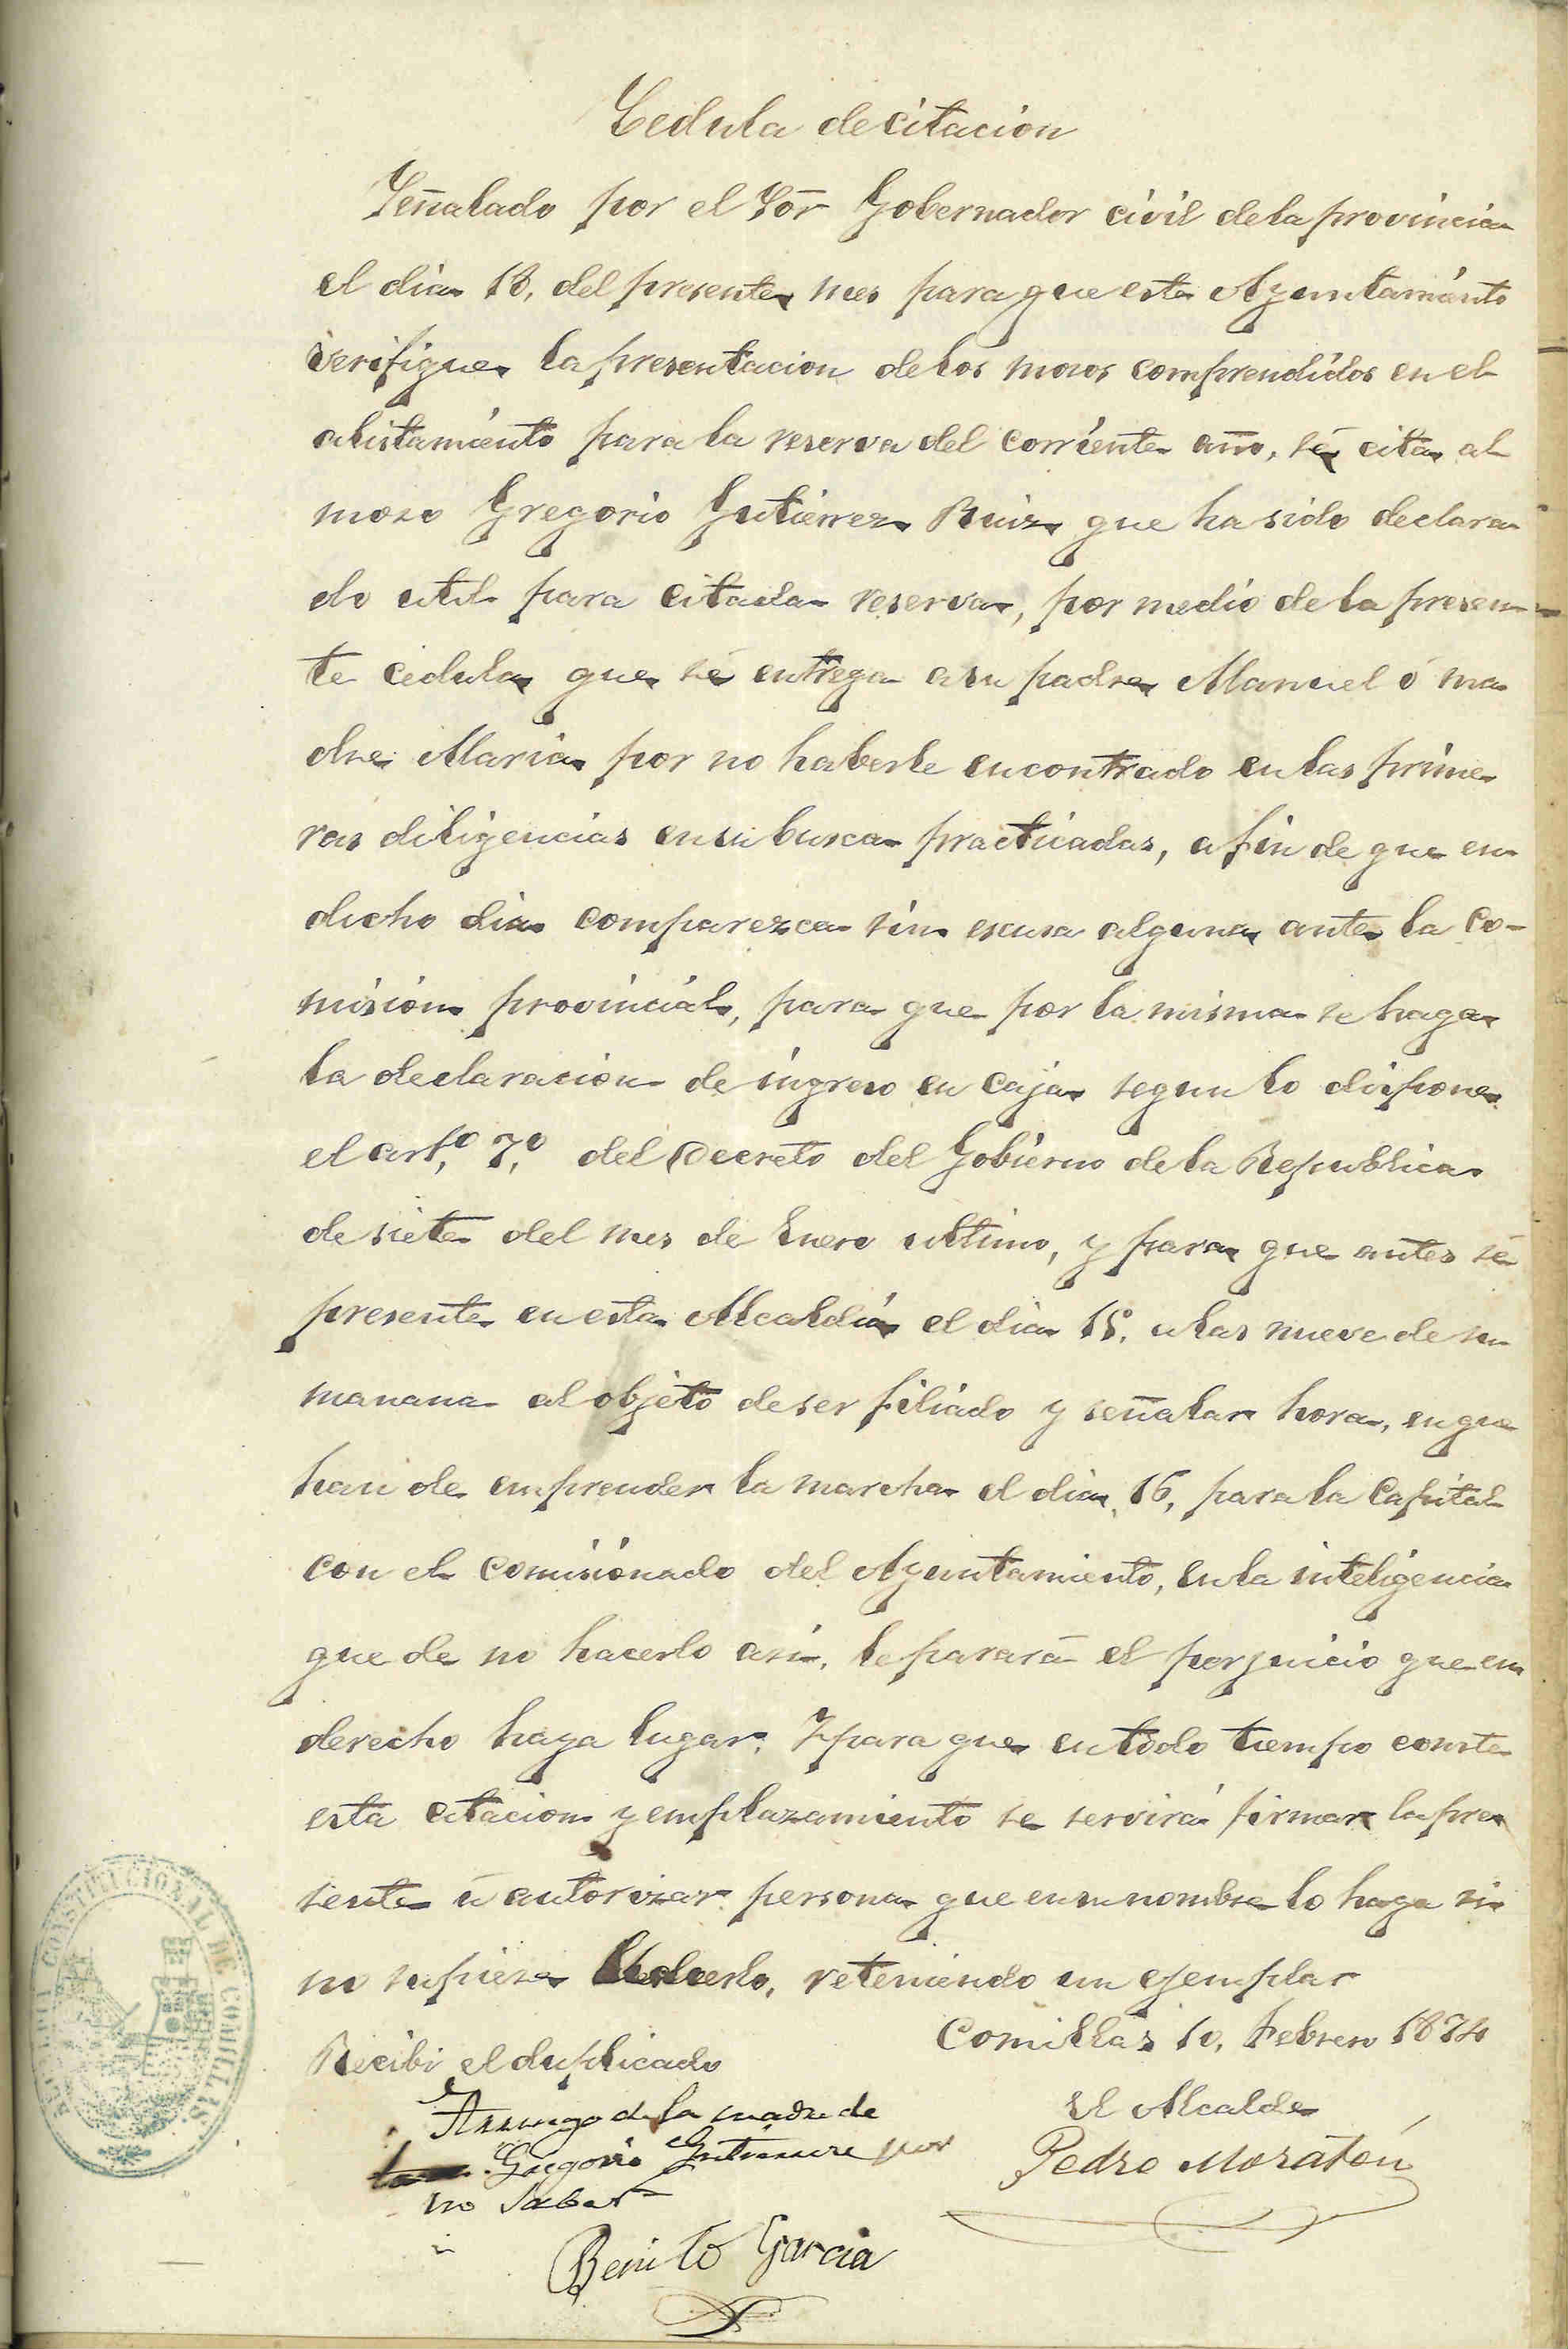 Cedula de citacion
Señalado por el Sōr Gobernador civil de la provincia
el dia 18, del presente mes para que este Ayuntamiento
verifique la presentacion de los mozos comprendidos en el
alistamiento para la reserva del corriente año, se cita al
mozo Gregorio Gutierrez Ruiz que ha sido declara
do util para citada reserva, por medio de la presen-
te cedula que se entrega a su padre Manuel ó ma
dre Maria por no haberle encontrado en las prime
ras diligencias en su busca practicadas, a fin de que en
dicho dia comparezca sin escusa alguna ante la Co-
mision provincial, para que por la misma se haga
la declaracion de ingreso en caja segun lo dispone
el art.º 7.º del Decreto del Gobierno de la Republica
de siete del mes de Enero ultimo, y para que antes se
presente en esta Alcaldia el dia 15, a las nueve de su
manana al objeto de ser filiado y señalar hora, en que
han de emprender la marcha el dia, 16, para la Capital
con el comisionado del Ayuntamiento, en la inteligencia
que de no hacerlo asi, le parará el perjuicio que en
derecho haya lugar. Y para que en todo tiempo conste
esta citacion y emplazamiento se servirá firmar la pre
sente ú autorizar persona que en su nombre lo haga si
no supiere hacerlo, reteniendo un ejemplar
Comillas 10, Febrero 1874
Recibi el duplicado
El Alcalde
A ruego de la madre de
Pedro Moraton
Gregorio Gutierrez por
no saber
Benito Garcia
CONSTITUCIONAL DE COMILLAS